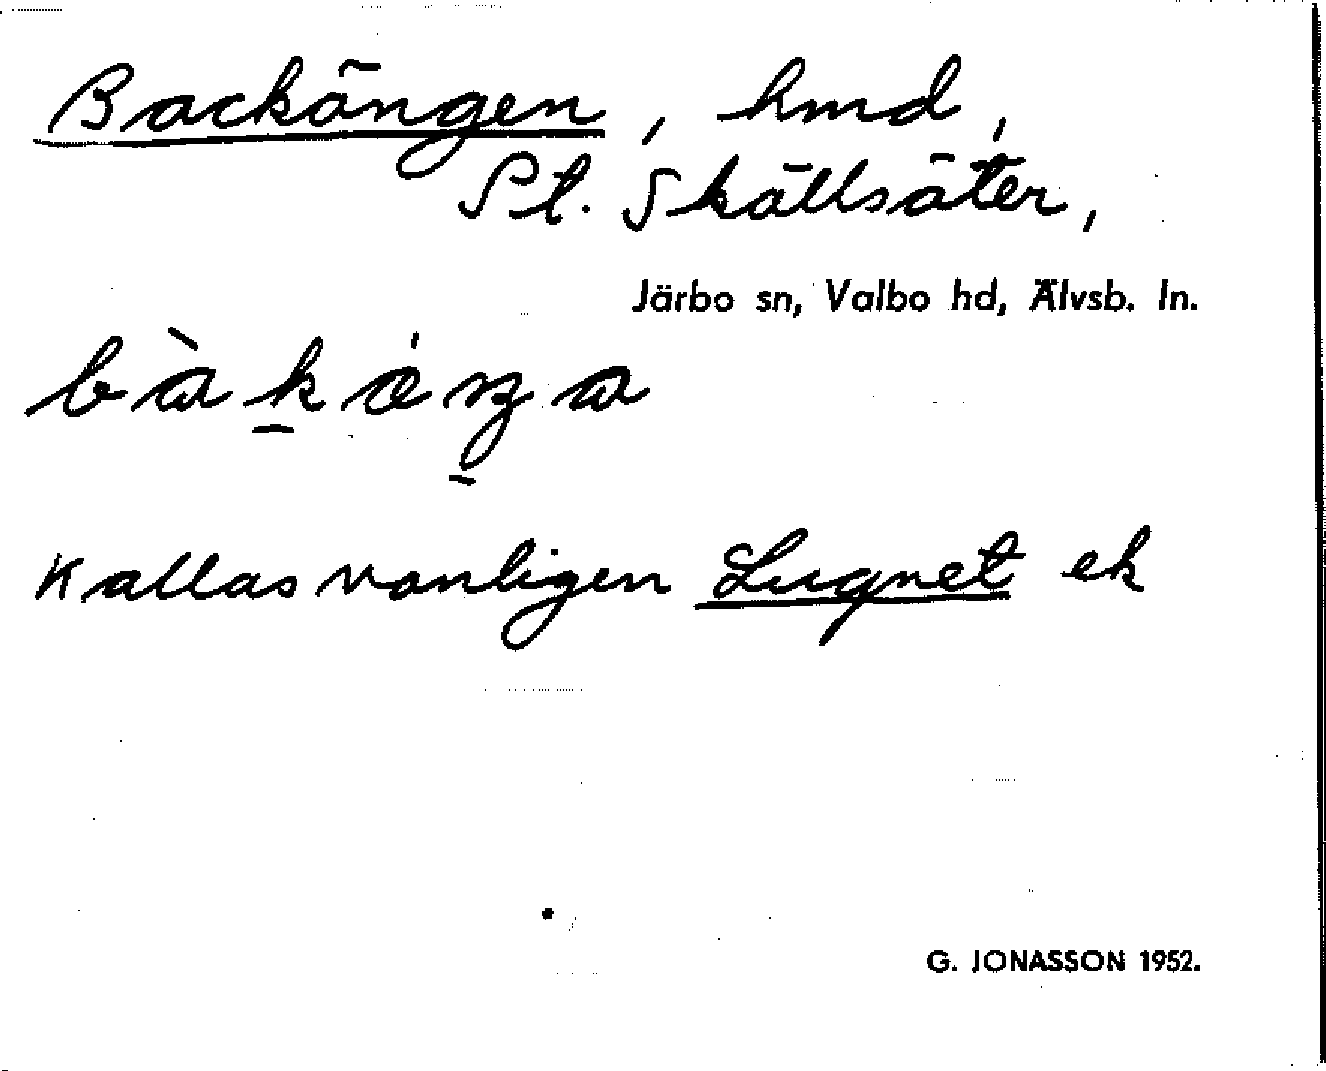 Backängen, hmd,
St. Skällsäter,
Järbo sn, Valbo hd, Älvsb. ln.
Kallas vanligen Lugnet ek
G. JONASSON 1952.